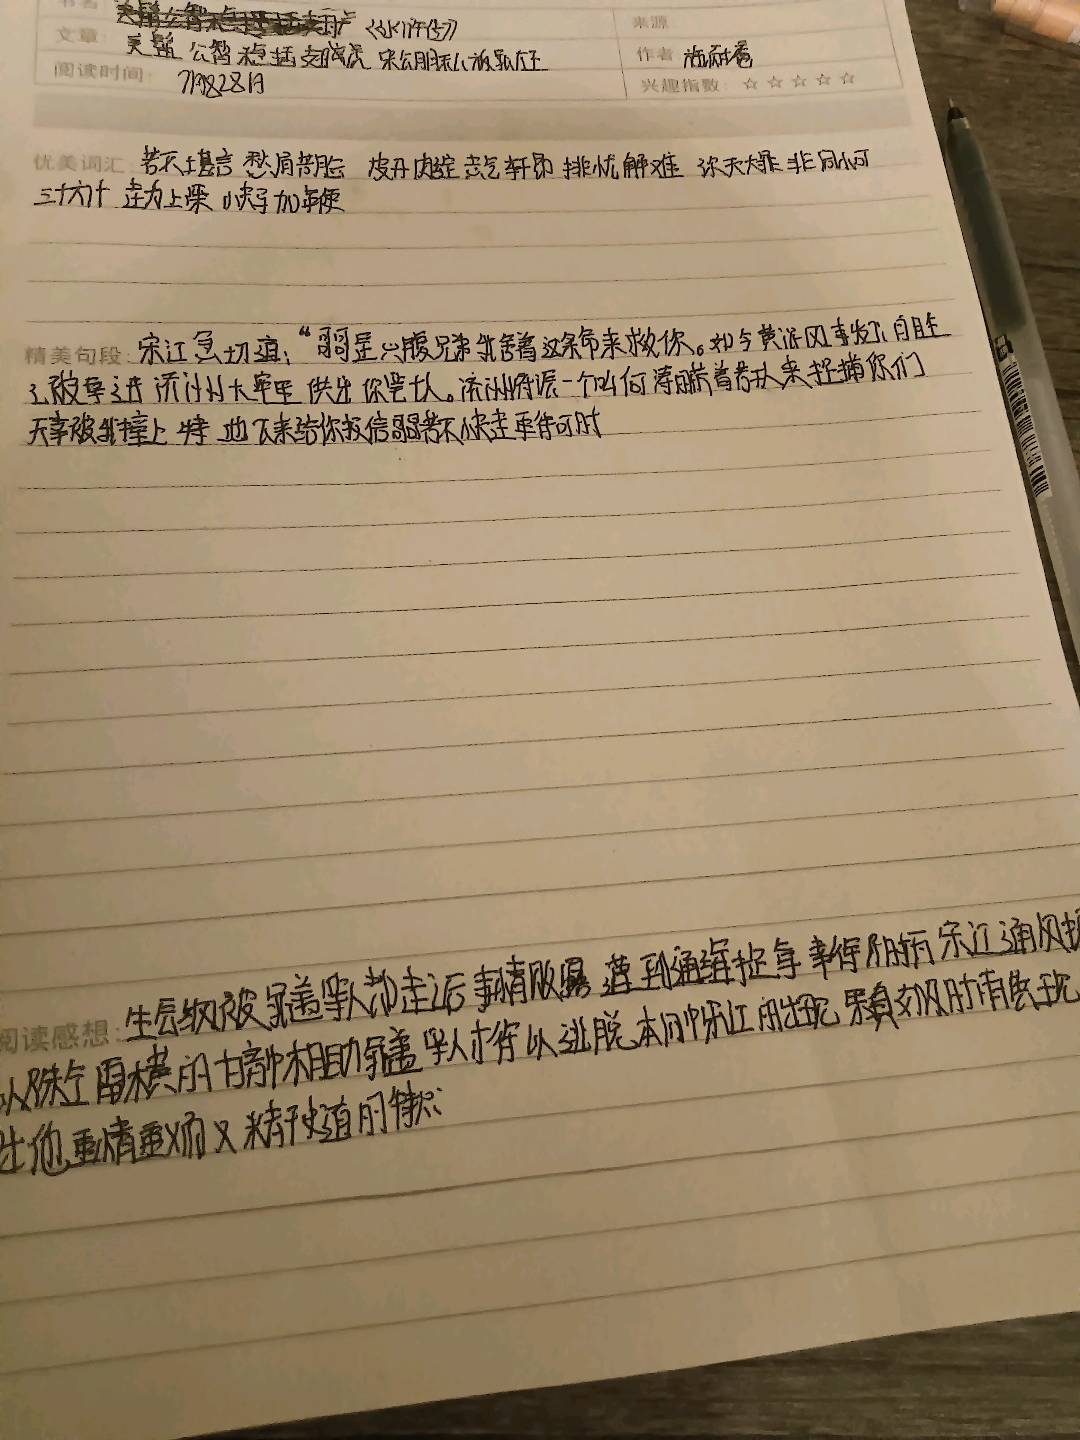 书名 《水浒传》 来源
文章: 美髯公智稳插翅虎 宋公明私放晁天王 作者 施耐庵
阅读时间: 7月28日 兴趣指数: ☆☆☆☆☆
优美词汇: 苦不堪言 愁眉苦脸 皮开肉绽 志气轩昂 排忧解难 弥天大罪 非同小可
三十六计 走为上策 快马加鞭
精美句段: 宋江急切道:“晁盖心腹兄弟我舍着这条命来救你。如今黄泥冈事发了白胜
已被拿进济州大牢里供出你等七人。济州府派一个叫何涛 带着若干人来捉捕你们
天幸被我撞上 特地飞来给你报信 若不快走更待何时
阅读感想: 生辰纲被晁盖等人劫走之后 事情败露 遭到通缉捉拿 幸得 宋江通风报
朱仝雷横的 相助晁盖等人才得以逃脱 宋江的出现 果真 及时雨
出他重情重义 的特点